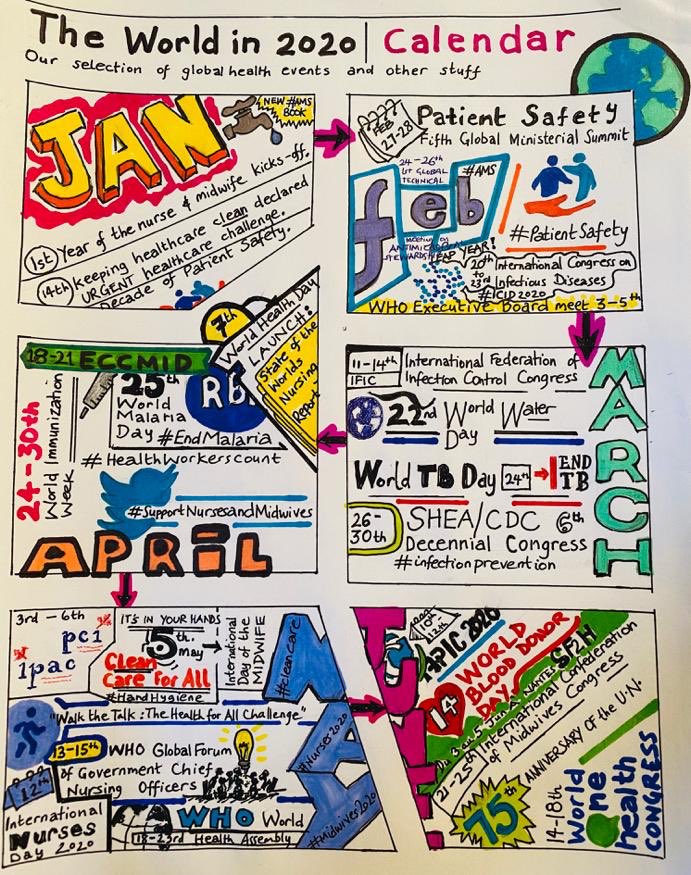 The World in 2020 | Calendar
Our selection of global health events and other stuff
JAN
NEW #AMS
BOOK
1st Year of the nurse & midwife kicks-off.
14th keeping healthcare clean declared
URGENT healthcare challenge.
Decade of Patient Safety.
FEB
27-28
Patient Safety
Fifth Global Ministerial Summit
24-26th
1st GLOBAL
TECHNICAL
#AMS
feb
meeting on
ANTIMICROBIAL
STEWARDSHIP
LEAP YEAR!
#PatientSafety
20th
to
23rd
International Congress on
Infectious Diseases
#ICID2020
WHO Executive Board meet 3-5th
MARCH
11-14th
IFIC
International Federation of
Infection Control Congress
22nd World Water
Day
World TB Day 24th
END
TB
26-
30th
SHEA/CDC 6th
Decennial Congress
#infectionprevention
7th
World Health Day
LAUNCH:
State of the
Worlds
Nursing
Report
18-21 ECCMID
24-30th
World Immunization
Week
25th
World
Malaria
Day #EndMalaria
#HealthWorkersCount
#SupportNursesandMidwives
APRIL
3rd - 6th
pci
ipac
IT'S IN YOUR HANDS
5th
may
Clean
Care For All
#HandHygiene
International
Day of the
MIDWIFE
MAY
#cleancare
#Nurses2020
#midwives2020
"Walk the Talk: The Health for All Challenge"
13-15th
WHO Global Forum
of Government Chief
Nursing Officers
12th
International
Nurses
Day 2020
WHO World
18-23rd Health Assembly
10th
12th
APIC 2020
14th
WORLD
BLOOD DONOR
DAY
SF2H
21-25th International Confederation
of Midwives Congress
75th
ANNIVERSARY OF the U.N.
14-18th
World
One
health
CONGRESS